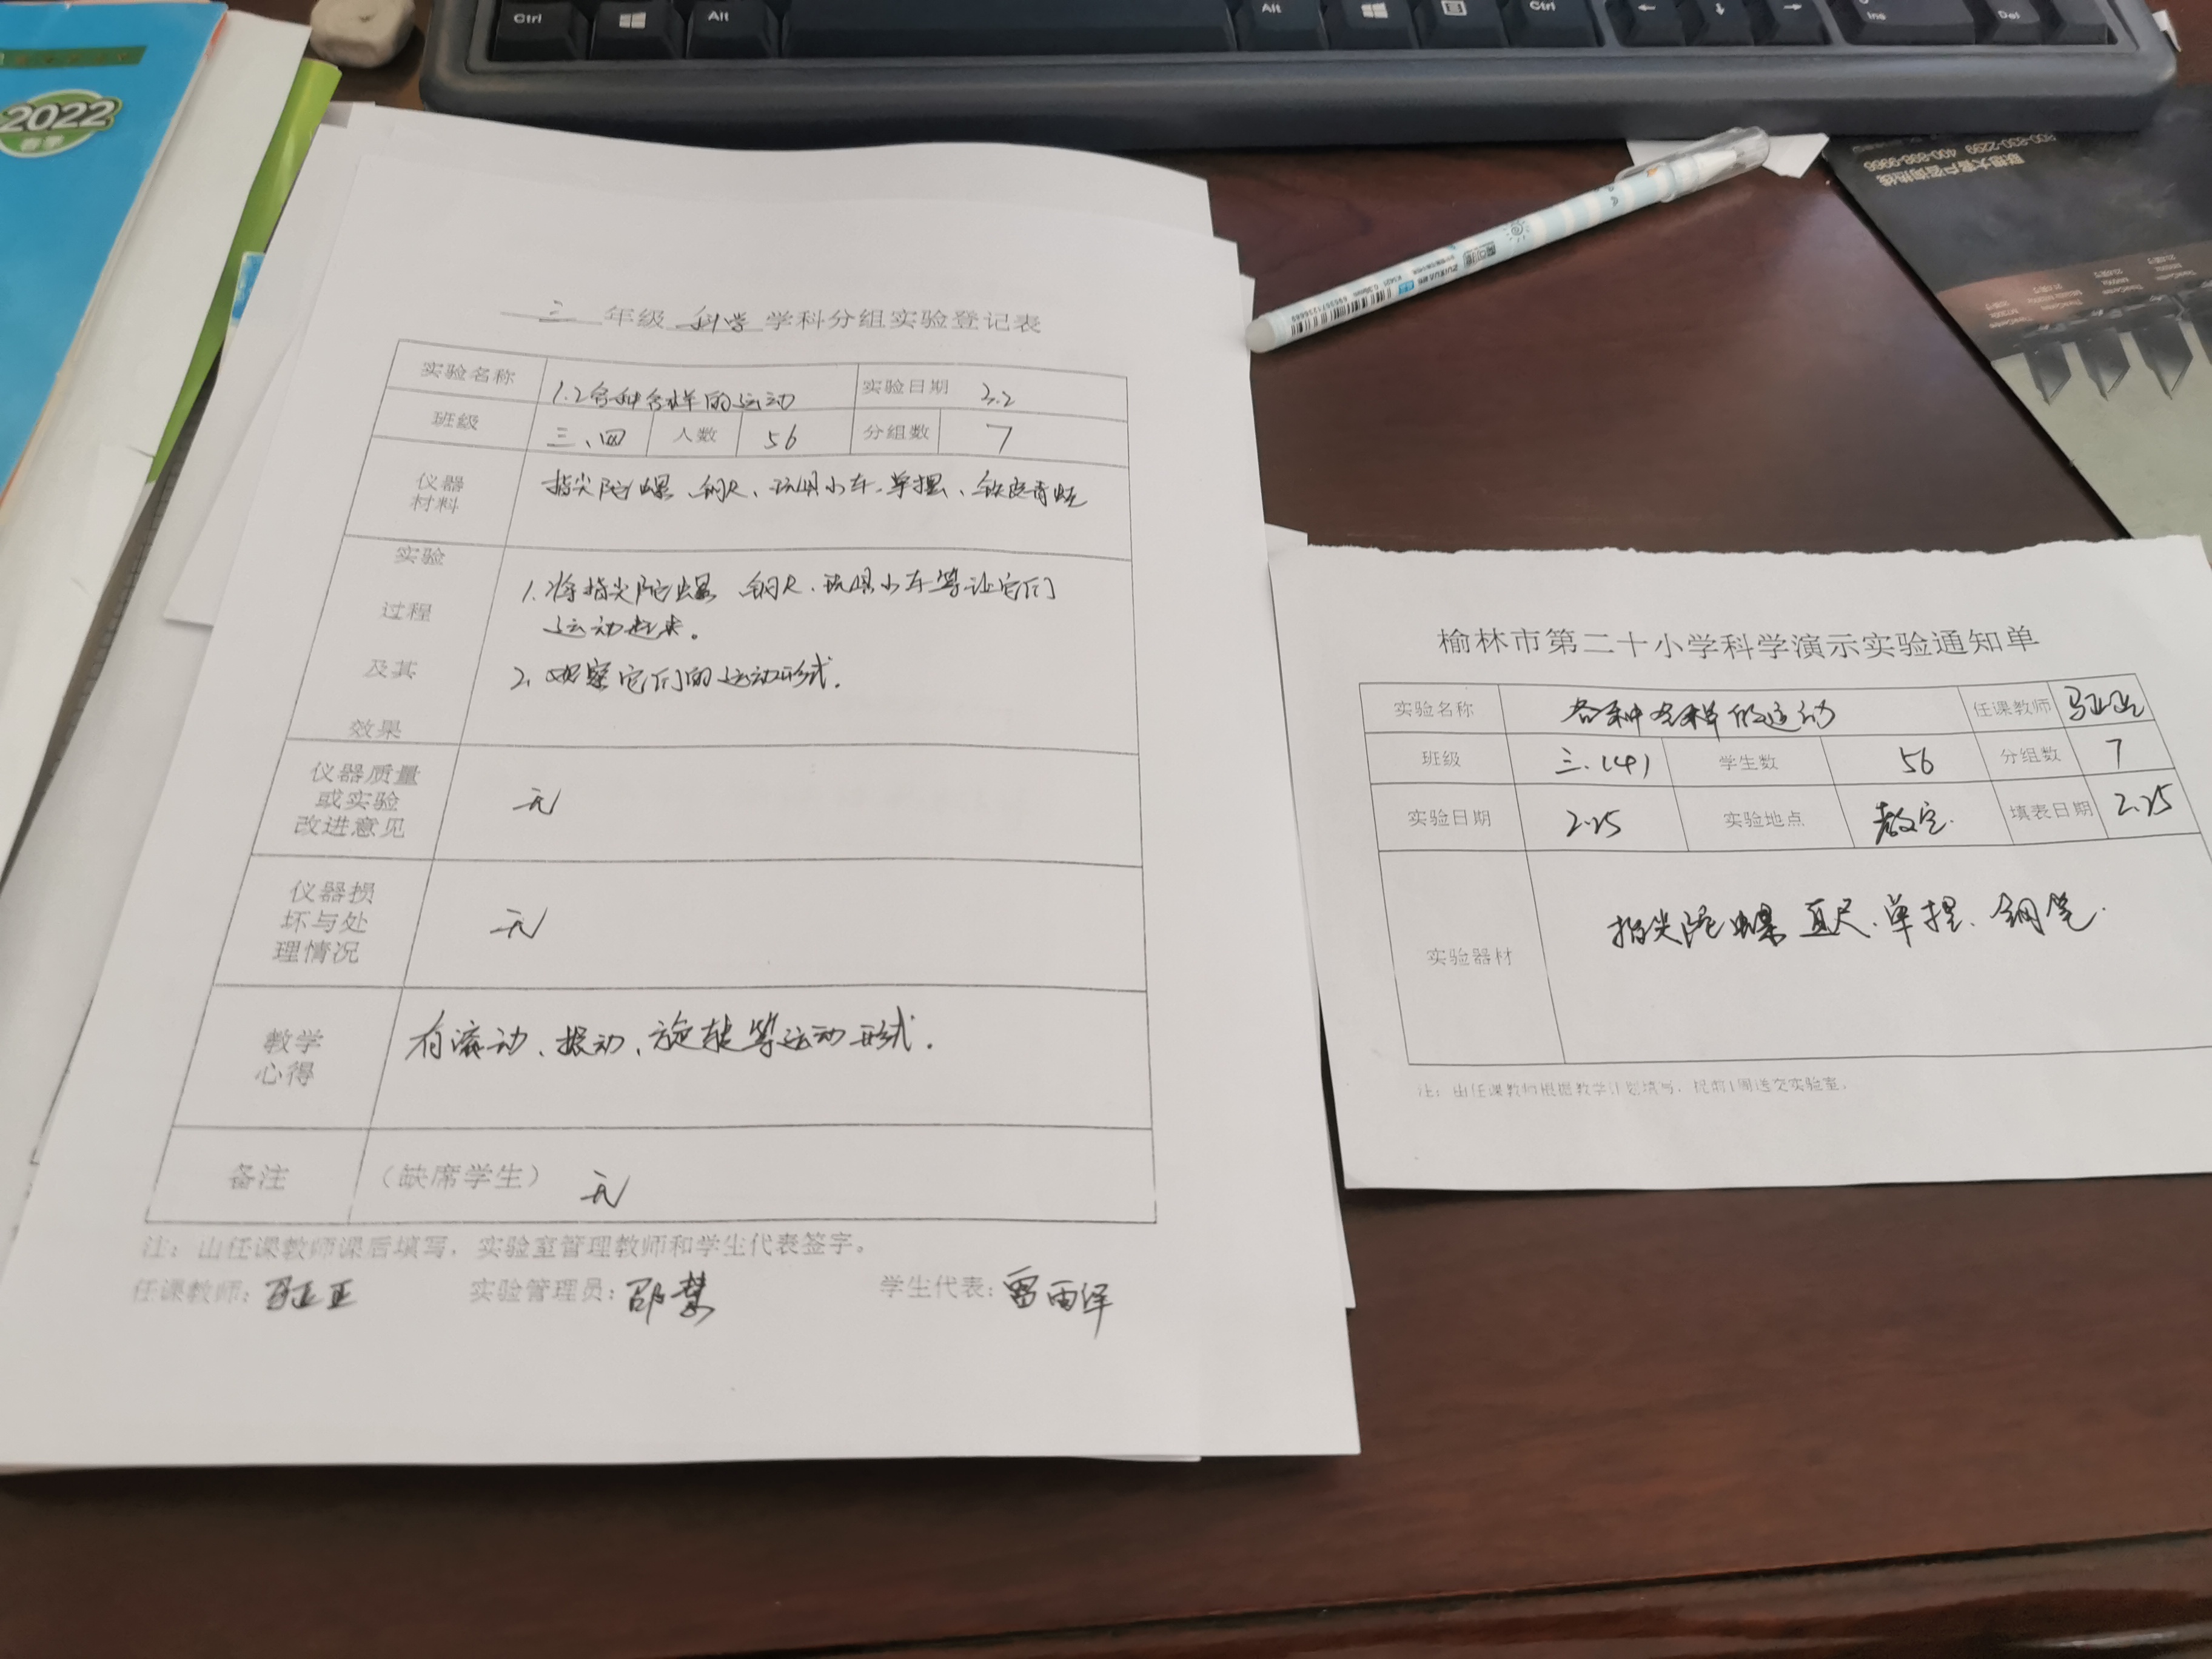 Ctrl
Alt
Alt
Ctrl
Ins
Del
2022
春季
三 年级 科学 学科分组实验登记表
实验名称 1.2各种各样的运动 实验日期 3.2
班级 三、四 人数 56 分组数 7
仪器
材料
指尖陀螺、钢尺、玩具小车、单摆、铁皮青蛙
实验
过程
及其
效果
1. 将指尖陀螺 钢尺、玩具小车等让它们
运动起来。
2. 观察它们的运动形式.
仪器质量
或实验
改进意见
无
仪器损
坏与处
理情况
无
教学
心得
有滚动、振动、旋转等运动形式.
备注 (缺席学生) 无
注：由任课教师课后填写，实验室管理教师和学生代表签字。
任课教师: 实验管理员: 邵慧 学生代表: 雨泽
联想大客户咨询热线
800-830-2299 400-898-9966
榆林市第二十小学科学演示实验通知单
实验名称 各种各样的运动 任课教师
班级 三.(4) 学生数 56 分组数 7
实验日期 2.25 实验地点 教室. 填表日期 2.25
实验器材 指尖陀螺 直尺.单摆、钢笔.
注：由任课教师根据教学计划填写，提前1周送交实验室。